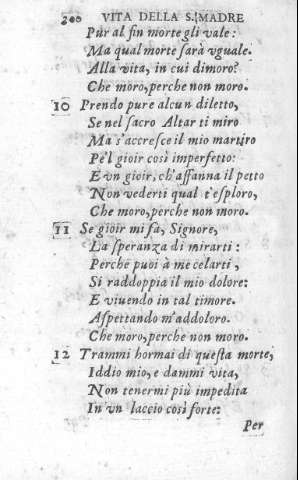 300 VITA DELLA S. MADRE
Pur al fin morte gli vale:
Ma qual morte sarà vguale.
Alla vita, in cui dimoro?
Che moro, perche non moro.
10 Prendo pure alcun diletto,
Se nel sacro Altar ti miro
Ma s'accresce il mio martiro
Pe'l gioir così imperfetto:
E vn gioir, ch'affanna il petto
Non vederti qual t'esploro,
Che moro, perche non moro.
11 Se gioir mi fà, Signore,
La speranza di mirarti:
Perche puoi à me celarti,
Si raddoppia il mio dolore:
E viuendo in tal timore.
Aspettando m'addoloro.
Che moro, perche non moro.
12 Trammi hormai di questa morte,
Iddio mio, e dammi vita,
Non tenermi più impedita
In vn laccio così forte:
Per